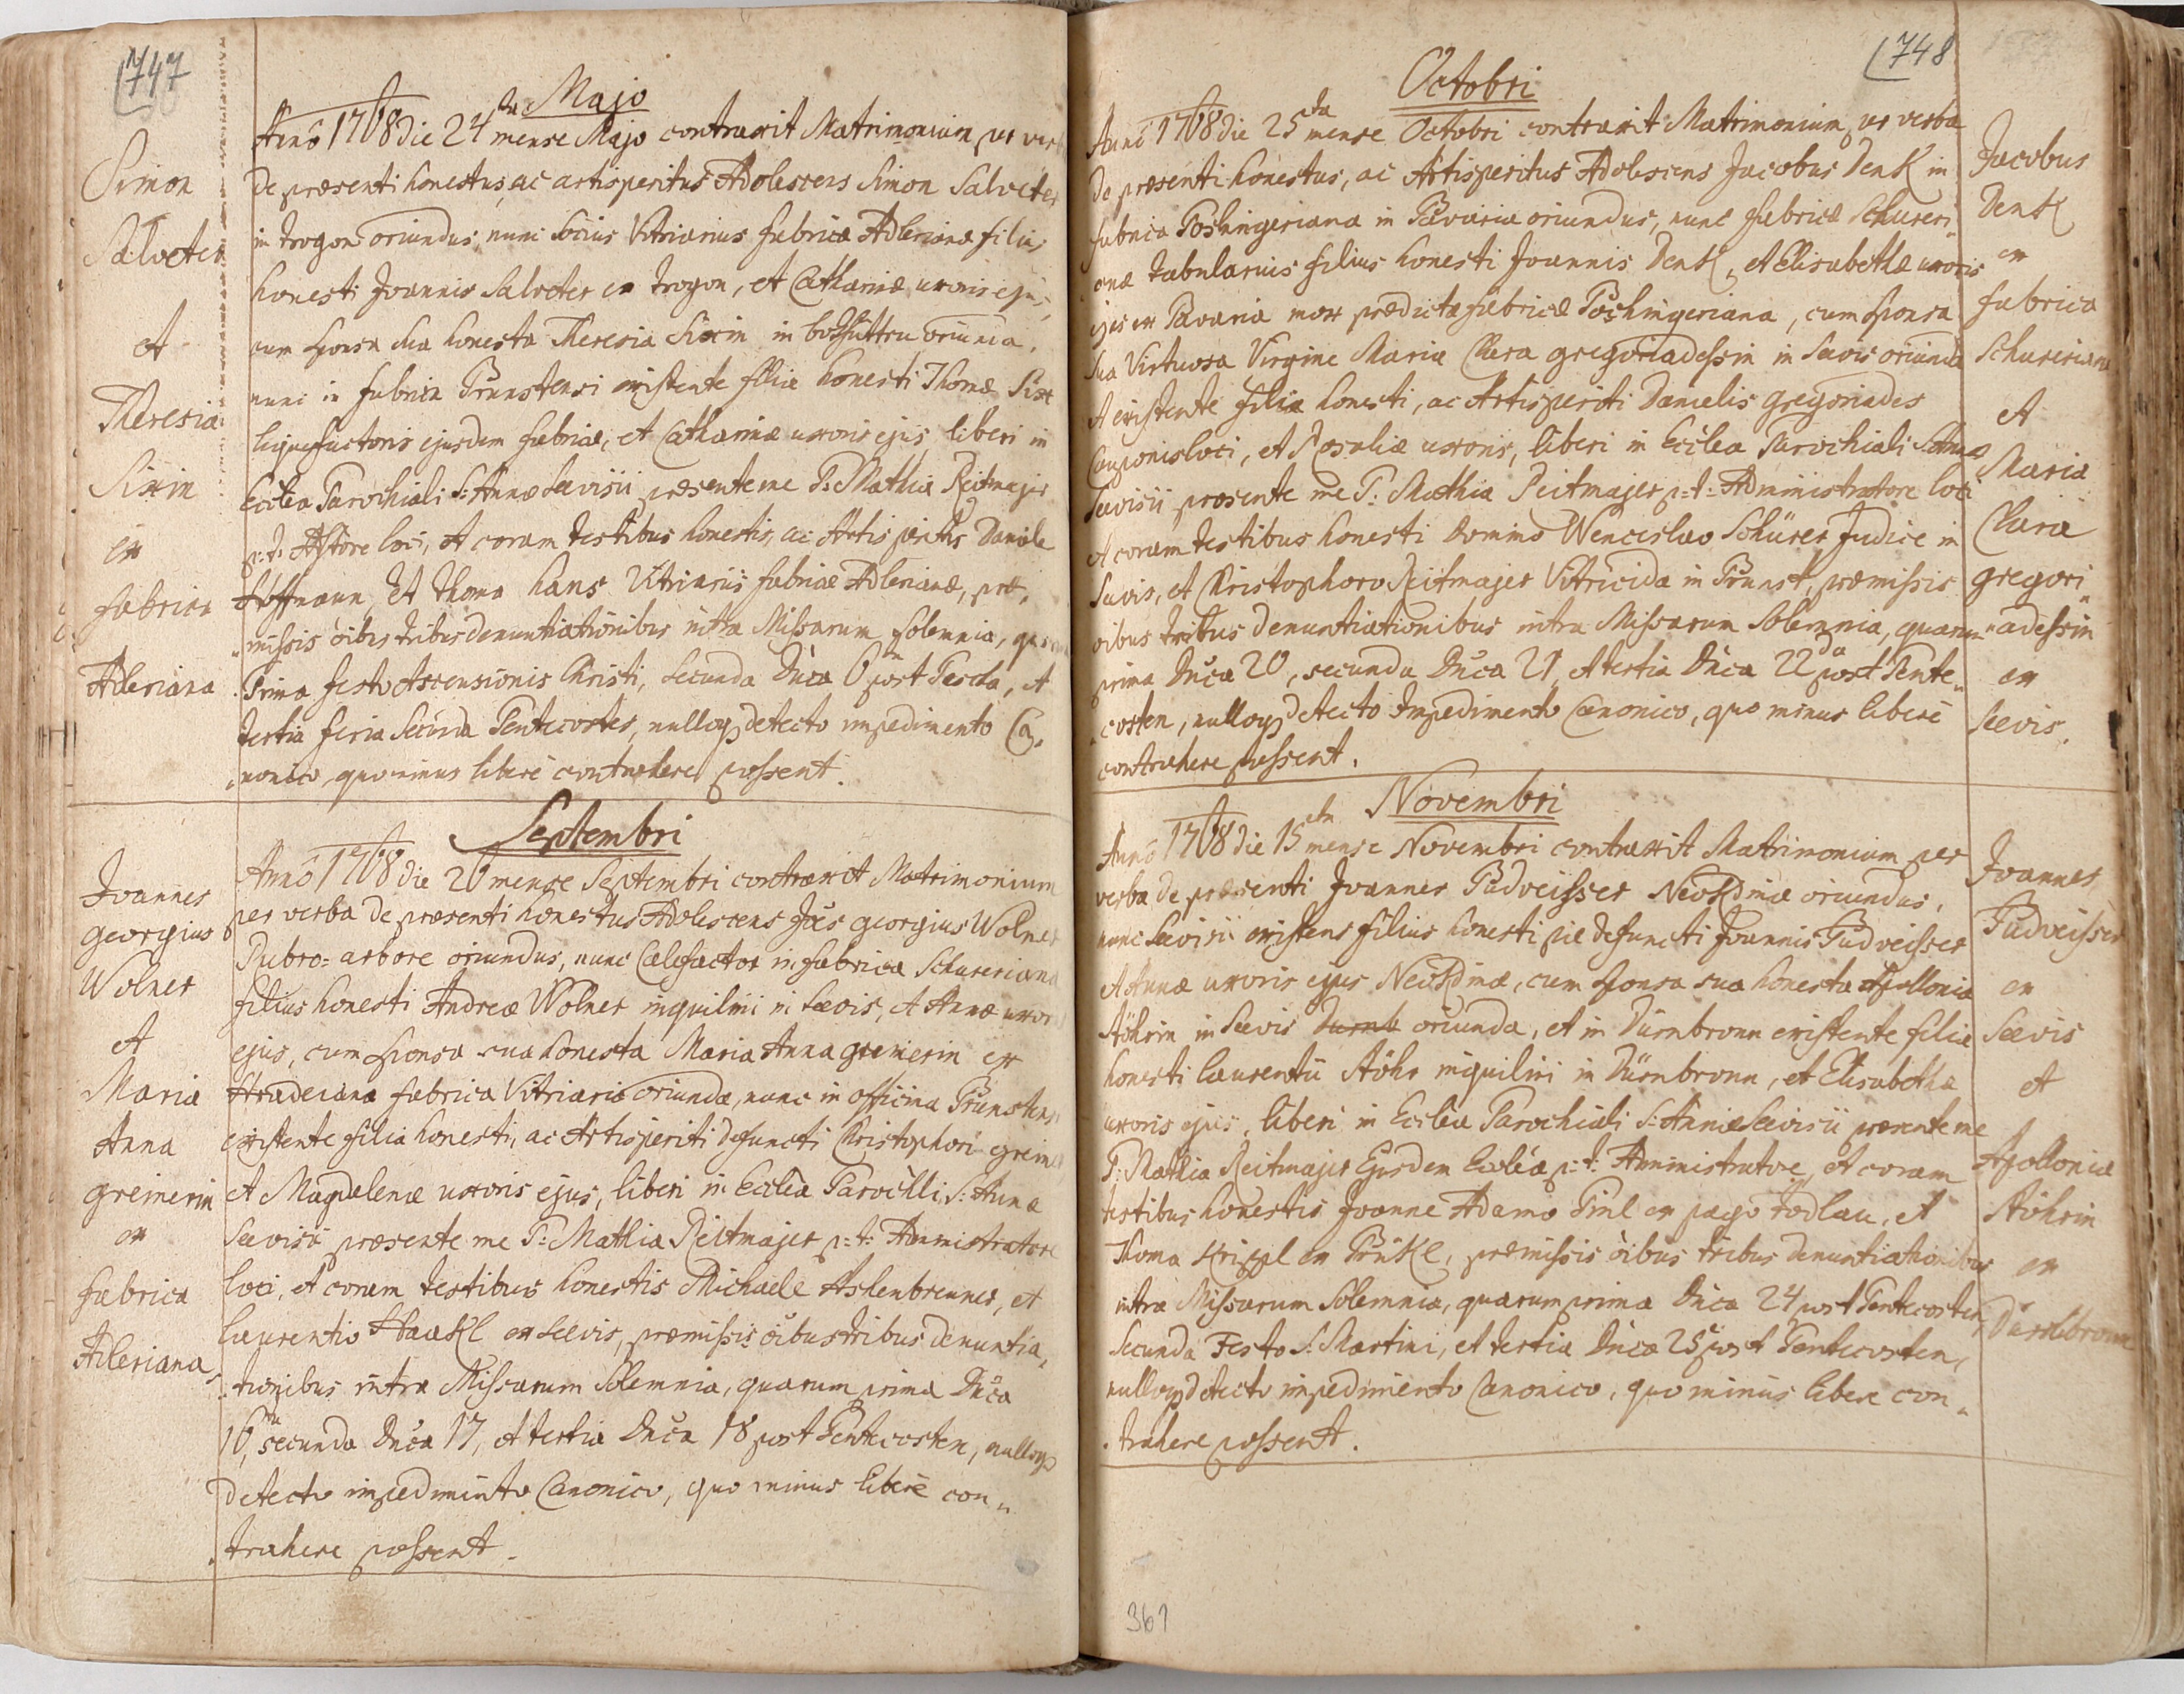 747
Majo
Simon
Salveter
et
Theresia
Sixin
ex
fabrica
Adleriana
Anno 1768 die 24ta mense Majo contraxit Matrimonium per verba
de præsenti honestus, ac artisperitus Adolescens Simon Salveter
in trogon oriundus, nunc Socius Vitriarius fabricæ Adlerianæ filius
honesti Joannis Salveter ex trogon, et Catharinæ uxoris ejus,
cum sponsa sua honesta Theresia Sixin in oriunda,
nunc in fabrica Prunstensi existente filia honesti Thomæ Six
liquefactoris ejusdem fabricæ, et Catharinæ uxoris ejus, liberi in
Ecclea Parochiali S: Annæ Seevisii præsente me P: Mathia Reitmajer
p: t: Astore loci, et coram testibus honestis, ac Artis peritis Daniele
Hoffmann, Et Thoma hans Vitriariis fabricæ Adlerianæ, præ„
„missis oibus tribus denuntiationibus intra Missarum solemnia, quarum
Prima festo Ascensionis Christi, Secunda Dnca 6 post Pascha, et
tertia feria Secunda Pentecostes, nulloq detecto impedimento Ca„
„nonico, quo minus liberè contrahere possent.
Septembri
Joannes
georgius
Wolner
et
Maria
Anna
greinerin
ex
fabrica
Adleriana
Anno 1768 die 20 mense Septembri contraxit Matrimonium
per verba de præsenti honestus Adolescens Joes georgius Wolner
Rubro=arbore oriundus, nunc Calefactor in fabrica Schureriana
filius honesti Andreæ Wolner inquilini in Seevis, et Annæ uxoris
ejus, cum sponsa sua honesta Maria Anna greinerin ex
fabrica Vitriaria oriunda, nunc in officina Prunstensi
existente filia honesti, ac Artisperiti defuncti Christophori greiner
et Magdalenæ uxoris ejus, liberi in Ecclea Parochli S: Annæ
Seevisii præsente me P: Mathia Reitmajer p: t: Administratore
loci, et coram testibus honestis Michaele Ashenbrenner, et
laurentio Haukl ex Seevis, præmissis oibus tribus denuntia„
„tionibus intra Missarum Solemnia, quarum prima Dnca
16, secunda Dnca 17, et tertia Dnca 18 post Pentecosten, nulloq
detecto impedimento Canonico, quo minus liberè con„
„trahere possent.
748
Octobri
Anno 1768 die 25ta mense Octobri contraxit Matrimonium per verba
de præsenti honestus, ac Artisperitus Adolescens Jacobus Denk in
fabrica Poshingeriana in Bavaria oriundus, nunc fabricæ Schureri„
anæ tabularius filius honesti Joannis Denk, et Elisabethæ uxoris
ejus ex Bavaria mox prædicta fabricæ Poshingeriana, cum sponsa
sua Virtuosa Virgine Maria Clara gregoriadessin in Seevis oriunda
et existente filia honesti, ac Artisperiti Danielis gregoriades
Cauponis loci, et Rosaliæ uxoris, liberi in Ecclea Parochiali S: Annæ
Seevisii præsente me P: Mathia Reitmajer p: t: Administratore loci
et coram testibus honesti Domino Wenceslao Schürer Judice in
Seevis, et Christophoro Reitmajer Vitricida in Prunst, præmissis
oibus tribus denuntiationibus intra Missarum Solemnia, quarum
prima Dnca 20, secunda Dnca 21, et tertia Dnca 22da post Pente„
„costen, nulloq detecto Impedimento Canonico, quo minus liberè
contrahere possent.
Jacobus
Denk
ex
fabrica
Schureriana
et
Maria
Clara
gregori„
„adessin
ex
Seevis.
Novembri
Anno 1768 die 15ta mense Novembri contraxit Matrimonium per
verba de præsenti Joannes Pudveisser Neokdinæ oriundus,
nunc Seevisii existens filius honesti pie defuncti Joannis Pudveisser
et Annæ uxoris ejus Neokdinæ, cum sponsa sua honesta Apollonia
Röhrin in Seevis Durnb oriunda, et in Dürnbronn existente filia
honesti laurentii Röhr inquilini in Dürnbronn, et Elisabethæ
uxoris ejus, liberi in Ecclea Parochiali S: Annæ Seevisii præsente me
P: Mathia Reitmajer Ejusdem Eccleæ p: t: Administratore, et coram
testibus honestis Joanne Adamo Piml ex pago todlau, et
Thoma Krippl ex Prükl, præmissis oibus tribus denuntiationibus
intra Missarum Solemnia, quarum prima Dnca 24 post Pentecosten,
Secunda Festo S: Martini, et tertia Dnca 25 post Pentecosten,
nulloq detecto impedimento Canonico, quo minus libere con„
„trahere possent.
Joannes
Pudveisser
ex
Seevis
et
Apollonia
Röhrin
ex
Dürnbronn
361